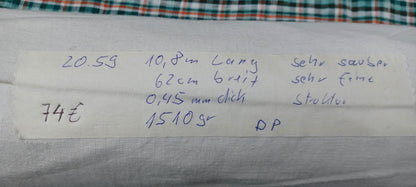 20.59 10,8m Lang sehr sauber
62cm breit sehr fine
0,45 mm dick Struktur
74€ 1510gr DP